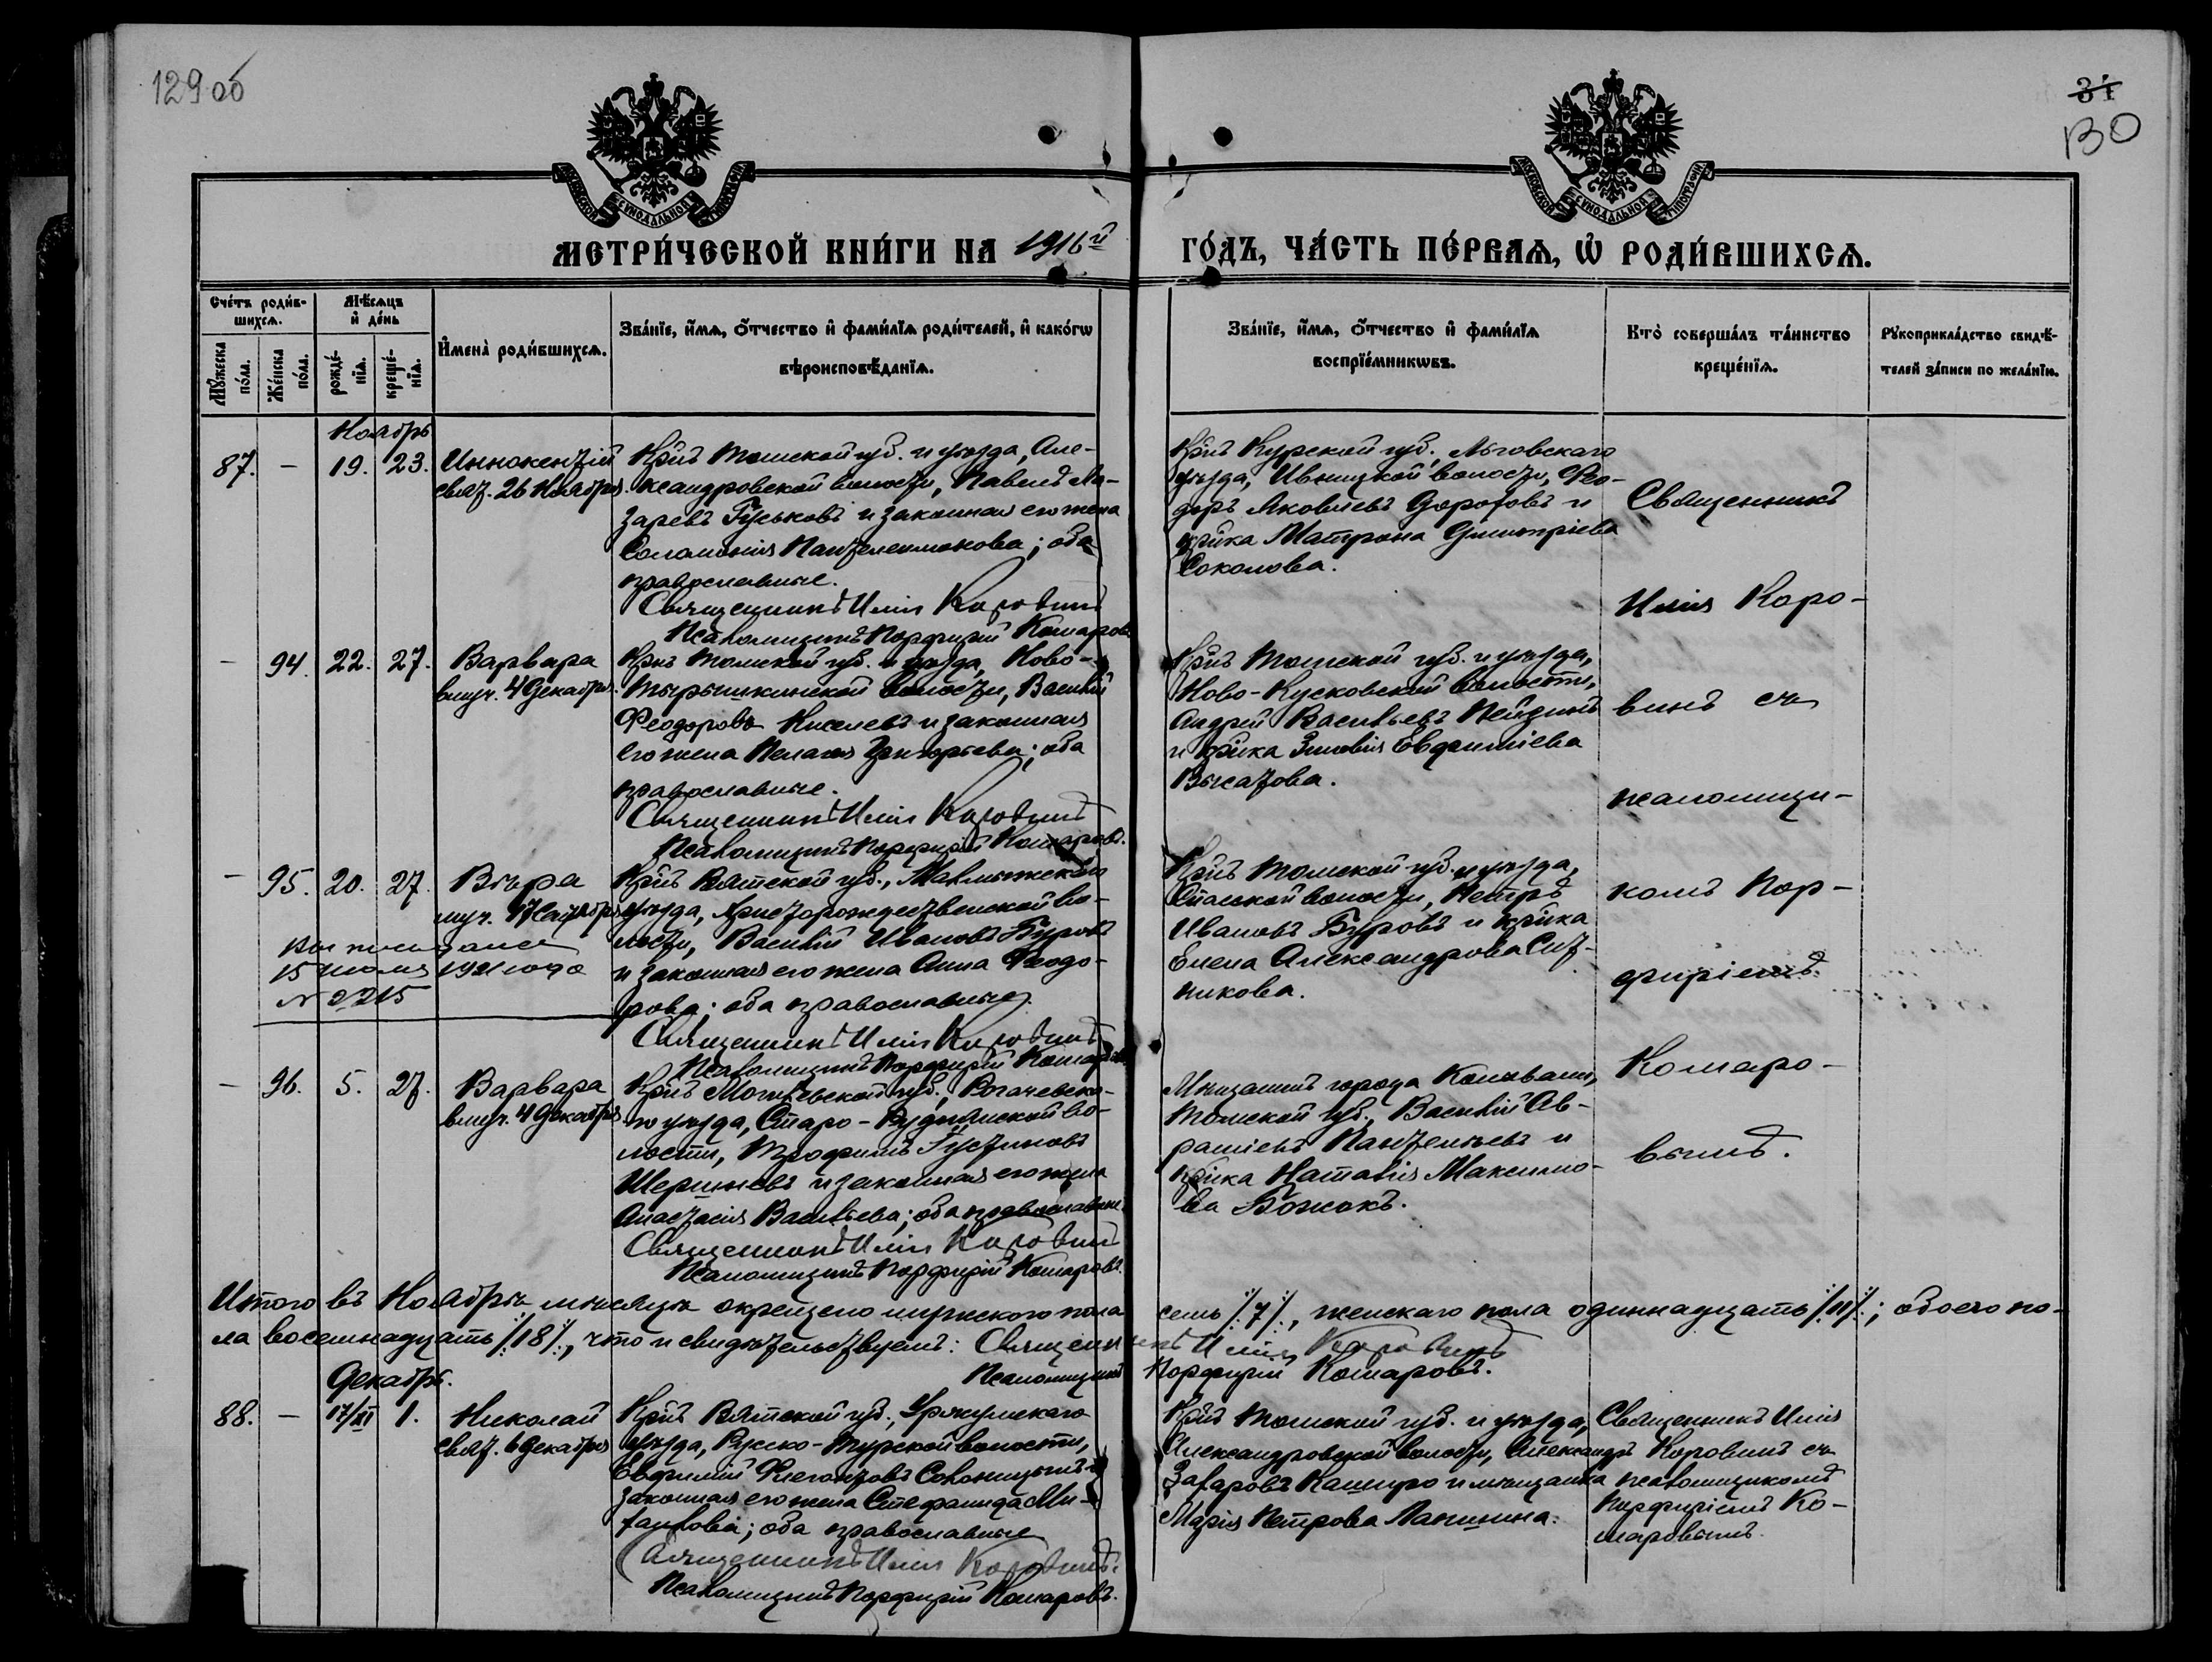 129 об
31
130
МОСКОВСКОЙ СѴНОДАЛЬНОЙ ТИПОГРАФІИ
МОСКОВСКОЙ СѴНОДАЛЬНОЙ ТИПОГРАФІИ
МЕТРИ́ЧЕСКОЙ КНИ́ГИ НА 1916й
ГО́ДЪ, ЧА́СТЬ ПЕ́РВАѦ, Ѡ҆ РОДИ́ВШИХСѦ.
Сче́тъ роди́в-
шихсѧ.
Мꙋ́жеска
по́ла.
Же́нска
по́ла.
Мѣ́сѧцъ
и҆ де́нь
рожде́-
нїѧ.
креще́-
нїѧ.
И҆мена̀ роди́вшихсѧ.
Зва́нїе, и҆́мѧ, ѻ҆́тчество и҆ фами́лїѧ роди́телей, и҆ како́гѡ
вѣроисповѣ́данїѧ.
Зва́нїе, и҆́мѧ, ѻ҆́тчество и҆ фами́лїѧ
воспрїе́мникѡвъ.
Кто̀ соверша́лъ та́инство
креще́нїѧ.
Рꙋкоприкла́дство свидѣ́-
телей за́писи по жела́нїю.
Ноябрь
87. – 19. 23. Иннокентій
свят. 26 Ноября.
Крн͞ъ Томской губ. и уѣзда, Але-
ксандровской волости, Павелъ Ла-
заревъ Гуськовъ и законная его жена
Соломонія Пантелеимонова; оба
православные.
Священникъ Илія Коровинъ
Псаломщикъ Порфирій Комаровъ
Крн͞ъ Курской губ., Льговскаго
уѣзда, Ивницкой волости, Ѳео-
доръ Яковлевъ Дорофовъ и
кр͞нка Матрона Димитріева
Соколова.
Священникъ
Илія Коро-
винъ съ
псаломщи-
комъ Пор-
фиріемъ
Комаро-
вымъ.
– 94. 22. 27. Варвара
вмуч. 4 Декабря.
Крн͞ъ Томской губ. и уѣзда, Ново-
Тырышкинской волости, Василій
Ѳеодоровъ Киселевъ и законная
его жена Пелагія Григорьева; оба
православные.
Священникъ Илія Коровинъ
Псаломщикъ Порфирій Комаровъ.
Крн͞ъ Томской губ. и уѣзда,
Ново-Кусковской волости,
Андрей Васильевъ
и кр͞нка Зиновія Евфиміева
– 95. 20. 27. Вѣра
муч. 17 Сентября
Выпись дана
15 июля 1921 года
№ 2215
Крн͞ъ Вятской губ., Малмыжскаго
уѣзда, Христорождественской во-
лости, Василій Ивановъ Буровъ
и законная его жена Анна Ѳеодо-
рова; оба православные.
Священникъ Илія Коровинъ
Псаломщикъ Порфирій Комаровъ
Крн͞ъ Томской губ. и уѣзда,
Спасской волости, Петръ
Ивановъ Буровъ и кр͞нка
Елена Александрова Сит-
никова.
– 96. 5. 27. Варвара
вмуч. 4 Декабря
Крн͞ъ Могилевской губ., Рогачевска-
го уѣзда, Старо-Руднянской во-
лости, Трофимъ Густиновъ
Шершневъ и законная его жена
Анастасія Васильева; оба православные.
Священникъ Илія Коровинъ
Псаломщикъ Порфирій Комаровъ.
Мѣщанинъ города Колывани,
Томской губ., Василій Ав-
раміевъ Пантелѣевъ и
кр͞нка Наталія Максимо-
ва Божокъ.
Итого въ Ноябрѣ мѣсяцѣ окрещено мужского пола семь /:7:/, женскаго пола одиннадцать /:11:/; обоего по-
ла восемнадцать /:18:/, что и свидѣтельствуемъ: Священникъ Илія Коровинъ
Псаломщикъ Порфирій Комаровъ.
Декабрь.
88. – 17/XI 1. Николай
свят. 6 Декабря
Крн͞ъ Вятской губ., Уржумскаго
уѣзда, Русско-Турской волости,
Евфимій Флегонтовъ и
законная его жена Стефанида Ми-
хаилова; оба православные
Священникъ Илія Коровинъ.
Псаломщикъ Порфирій Комаровъ.
Крн͞ъ Томской губ. и уѣзда,
Александровской волости, Александръ
Захаровъ Кашпро и мѣщанка
Марія Петрова Лапшина.
Священникъ Илія
Коровинъ съ
псаломщикомъ
Порфиріемъ Ко-
маровымъ.